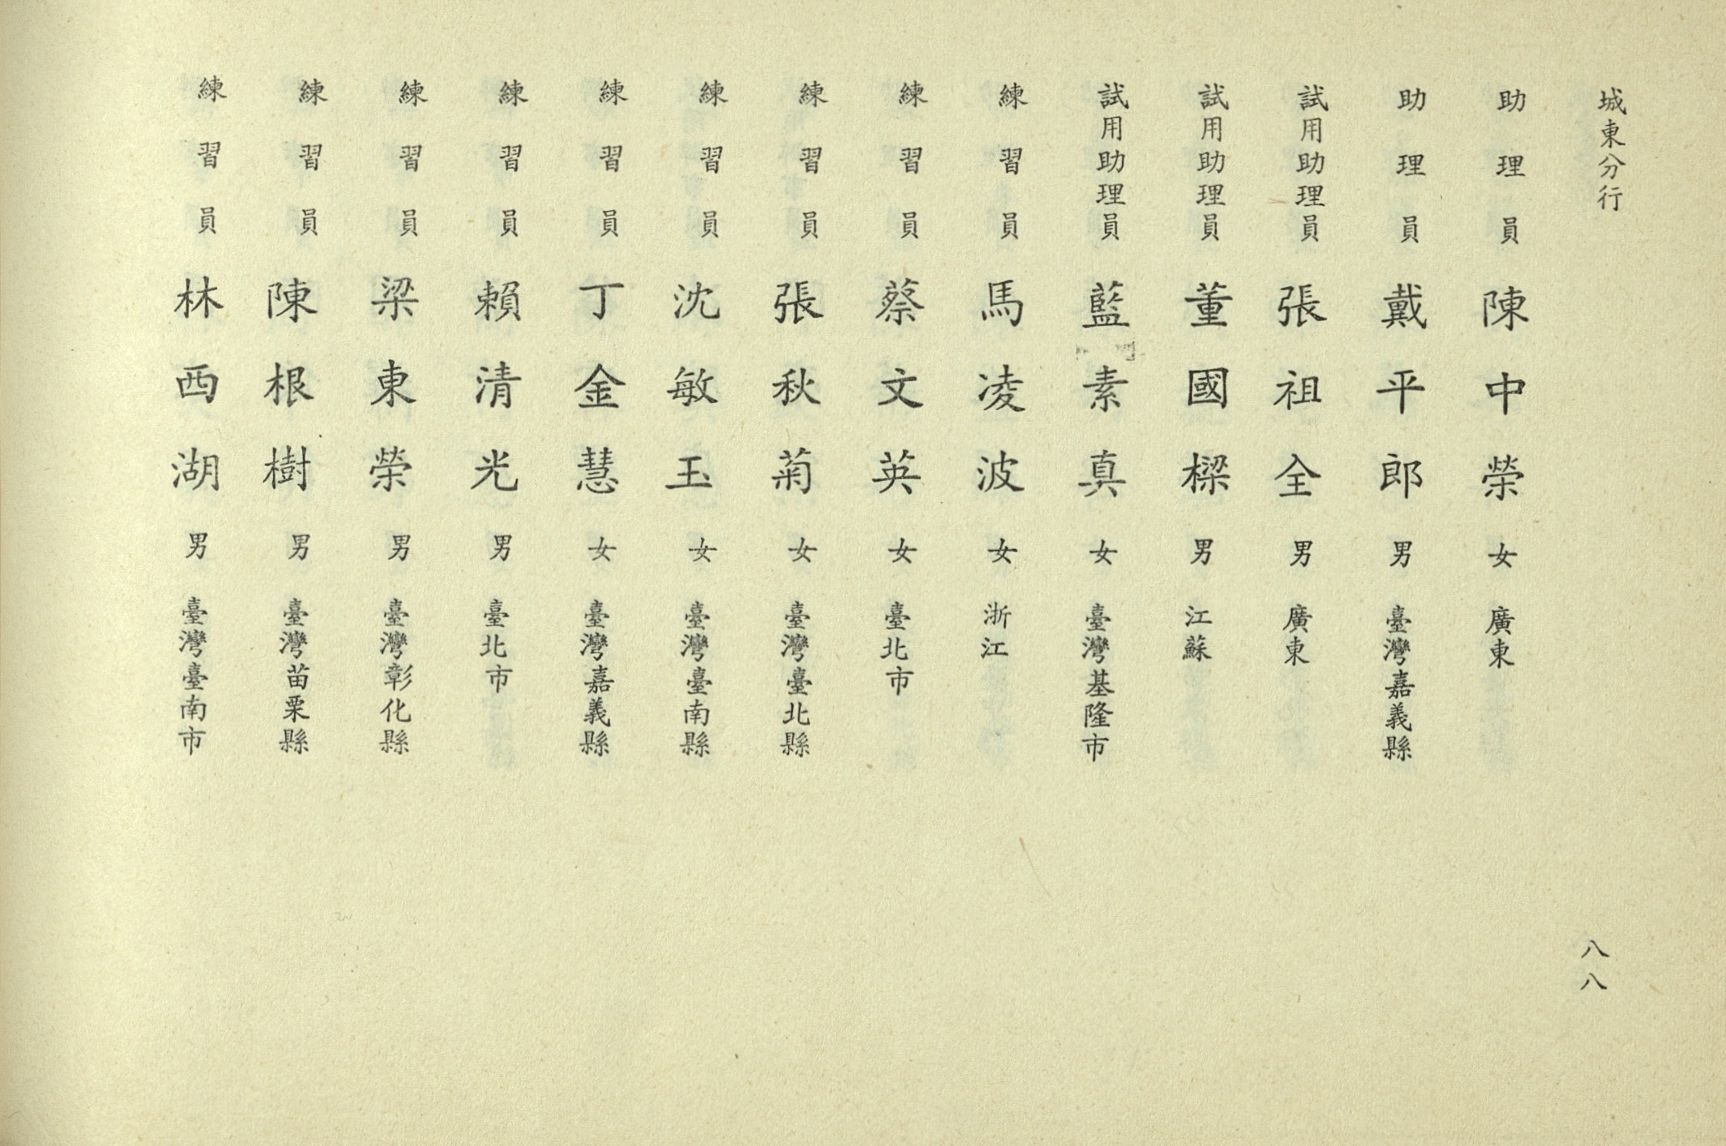 城東分行
助理員 陳中榮 女 廣東
助理員 戴平郎 男 臺灣嘉義縣
試用助理員 張祖全 男 廣東
試用助理員 董國樑 男 江蘇
試用助理員 藍素真 女 臺灣基隆市
練習員 馬凌波 女 浙江
練習員 蔡文英 女 臺北市
練習員 張秋菊 女 臺灣臺北縣
練習員 沈敏玉 女 臺灣臺南縣
練習員 丁金慧 女 臺灣嘉義縣
練習員 賴清光 男 臺北市
練習員 梁東榮 男 臺灣彰化縣
練習員 陳根樹 男 臺灣苗栗縣
練習員 林西湖 男 臺灣臺南市
八八